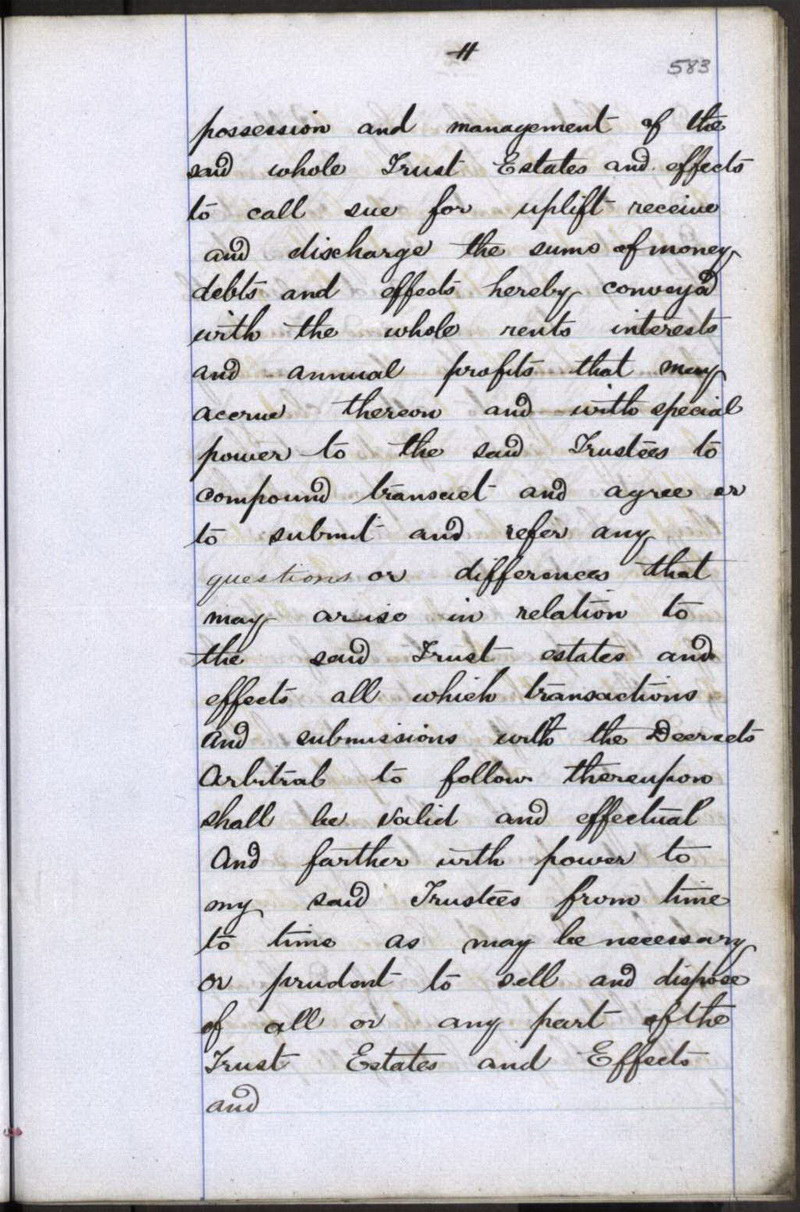 11
583
possession and management of the
said whole Trust Estates and effects
to call sue for uplift receive
and discharge the sums of money
debts and effects hereby conveyed
with the whole rents interests
and annual profits that may
accrue thereon and with special
power to the said Trustees to
compound transact and agree or
to submit and refer any
questions or differences that
may arise in relation to
the said Trust estates and
effects all which transactions
and submissions with the Decreets
Arbitral to follow thereupon
shall be valid and effectual
And farther with power to
my said Trustees from time
to time as may be necessary
or prudent to sell and dispose
of all or any part of the
Trust Estates and Effects
and